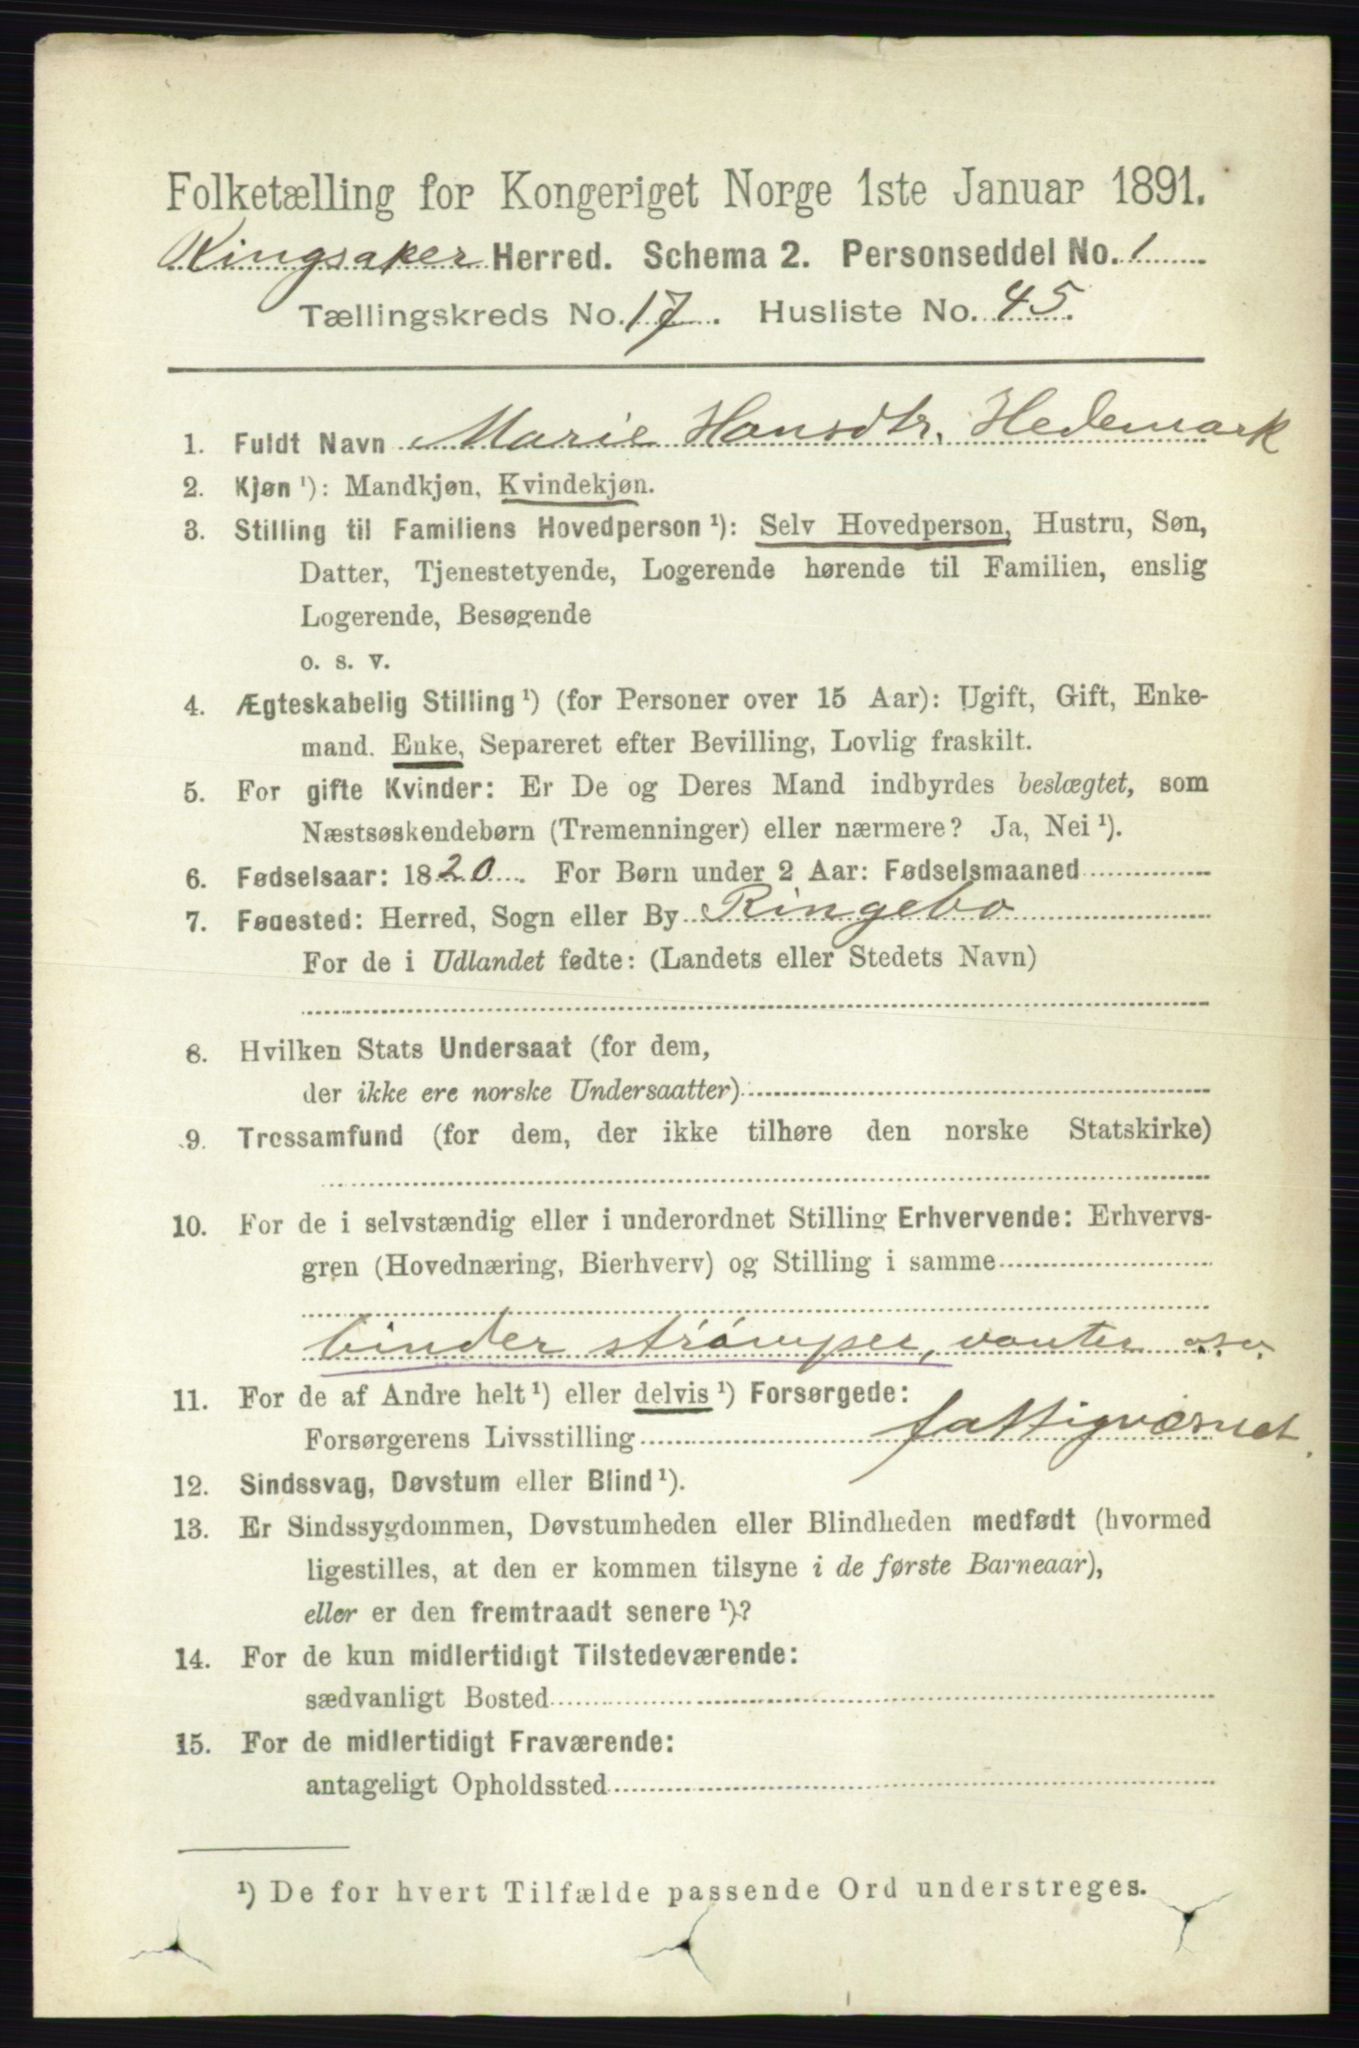 Folketælling for Kongeriget Norge 1ste Januar 1891.
Ringsaker Herred. Schema 2. Personseddel No. 1
Tællingskreds No. 17. Husliste No. 45.
1. Fuldt Navn Marie Hansdtr. Hedemark
2. Kjøn ¹): Mandkjøn, Kvindekjøn.
3. Stilling til Familiens Hovedperson ¹): Selv Hovedperson, Hustru, Søn,
Datter, Tjenestetyende, Logerende hørende til Familien, enslig
Logerende, Besøgende
o. s. v.
4. Ægteskabelig Stilling ¹) (for Personer over 15 Aar): Ugift, Gift, Enke-
mand. Enke, Separeret efter Bevilling, Lovlig fraskilt.
5. For gifte Kvinder: Er De og Deres Mand indbyrdes beslægtet, som
Næstsøskendebørn (Tremenninger) eller nærmere? Ja, Nei ¹).
6. Fødselsaar: 1820. For Børn under 2 Aar: Fødselsmaaned
7. Fødested: Herred, Sogn eller By Ringebo
For de i Udlandet fødte: (Landets eller Stedets Navn)
8. Hvilken Stats Undersaat (for dem,
der ikke ere norske Undersaatter)
9. Trossamfund (for dem, der ikke tilhøre den norske Statskirke)
10. For de i selvstændig eller i underordnet Stilling Erhvervende: Erhvervs-
gren (Hovednæring, Bierhverv) og Stilling i samme
binder strømper, vanter osv.
11. For de af Andre helt ¹) eller delvis ¹) Forsørgede:
Forsørgerens Livsstilling fattigvæsnet.
12. Sindssvag, Døvstum eller Blind ¹).
13. Er Sindssygdommen, Døvstumheden eller Blindheden medfødt (hvormed
ligestilles, at den er kommen tilsyne i de første Barneaar),
eller er den fremtraadt senere ¹)?
14. For de kun midlertidigt Tilstedeværende:
sædvanligt Bosted
15. For de midlertidigt Fraværende:
antageligt Opholdssted
¹) De for hvert Tilfælde passende Ord understreges.